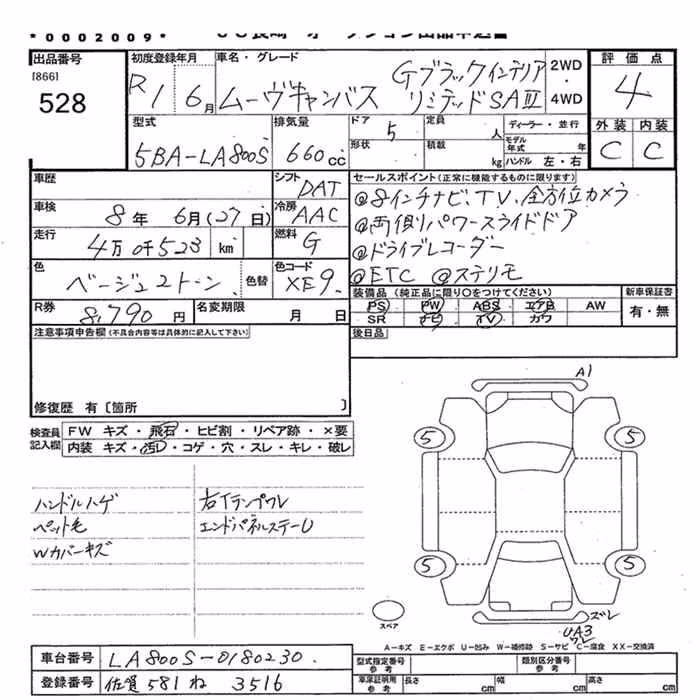 *0002009*
出品番号 初度登録年月 車名・グレード 2WD・4WD 評価点
[866]
528
R1 6月 ムーヴキャンバス Gブラックインテリア リミテッドSAⅢ 4
型式 排気量 ドア 5 定員 人 ディーラー・並行 外装 内装
5BA-LA800S 660cc 形状 積載 kg モデル年式 年 ハンドル 左・右 C C
車歴 シフト DAT セールスポイント(正常に機能するものに限ります)
車検 8年 6月(27日) 冷房 AAC @8インチナビ、TV、全方位カメラ
@両側パワースライドドア
走行 4万0千523 km 燃料 G @ドライブレコーダー
色 ベージュ2トーン 色替 色コード XE9 @ETC @ステリモ
R券 8,790円 名変期限 月 日 装備品(純正品に限り○をつけてください) 新車保証書
PS PW ABS エアB AW 有・無
SR ナビ TV カワ
注意事項申告欄(不具合内容等は具体的に記入して下さい) 後日品
修復歴 有〔箇所 〕
検査員記入欄 FW キズ・飛石・ヒビ割・リペア跡・×要
内装 キズ・汚レ・コゲ・穴・スレ・キレ・破レ
A1
5 5
ハンドルハゲ 右Tテンプワレ
ペット毛 エンドパネルステーU
Wカバーキズ
5 5
スペア
ズレ
UA3
ワレ
A-キズ E-エクボ U-凹み W-補修跡 S-サビ C-腐食 XX-交換済
車台番号 LA800S-0180230 型式指定番号 参考 類別区分番号 参考
登録番号 佐賀 581 ね 3516 車庫証明用 参考 長さ cm 幅 cm 高さ cm